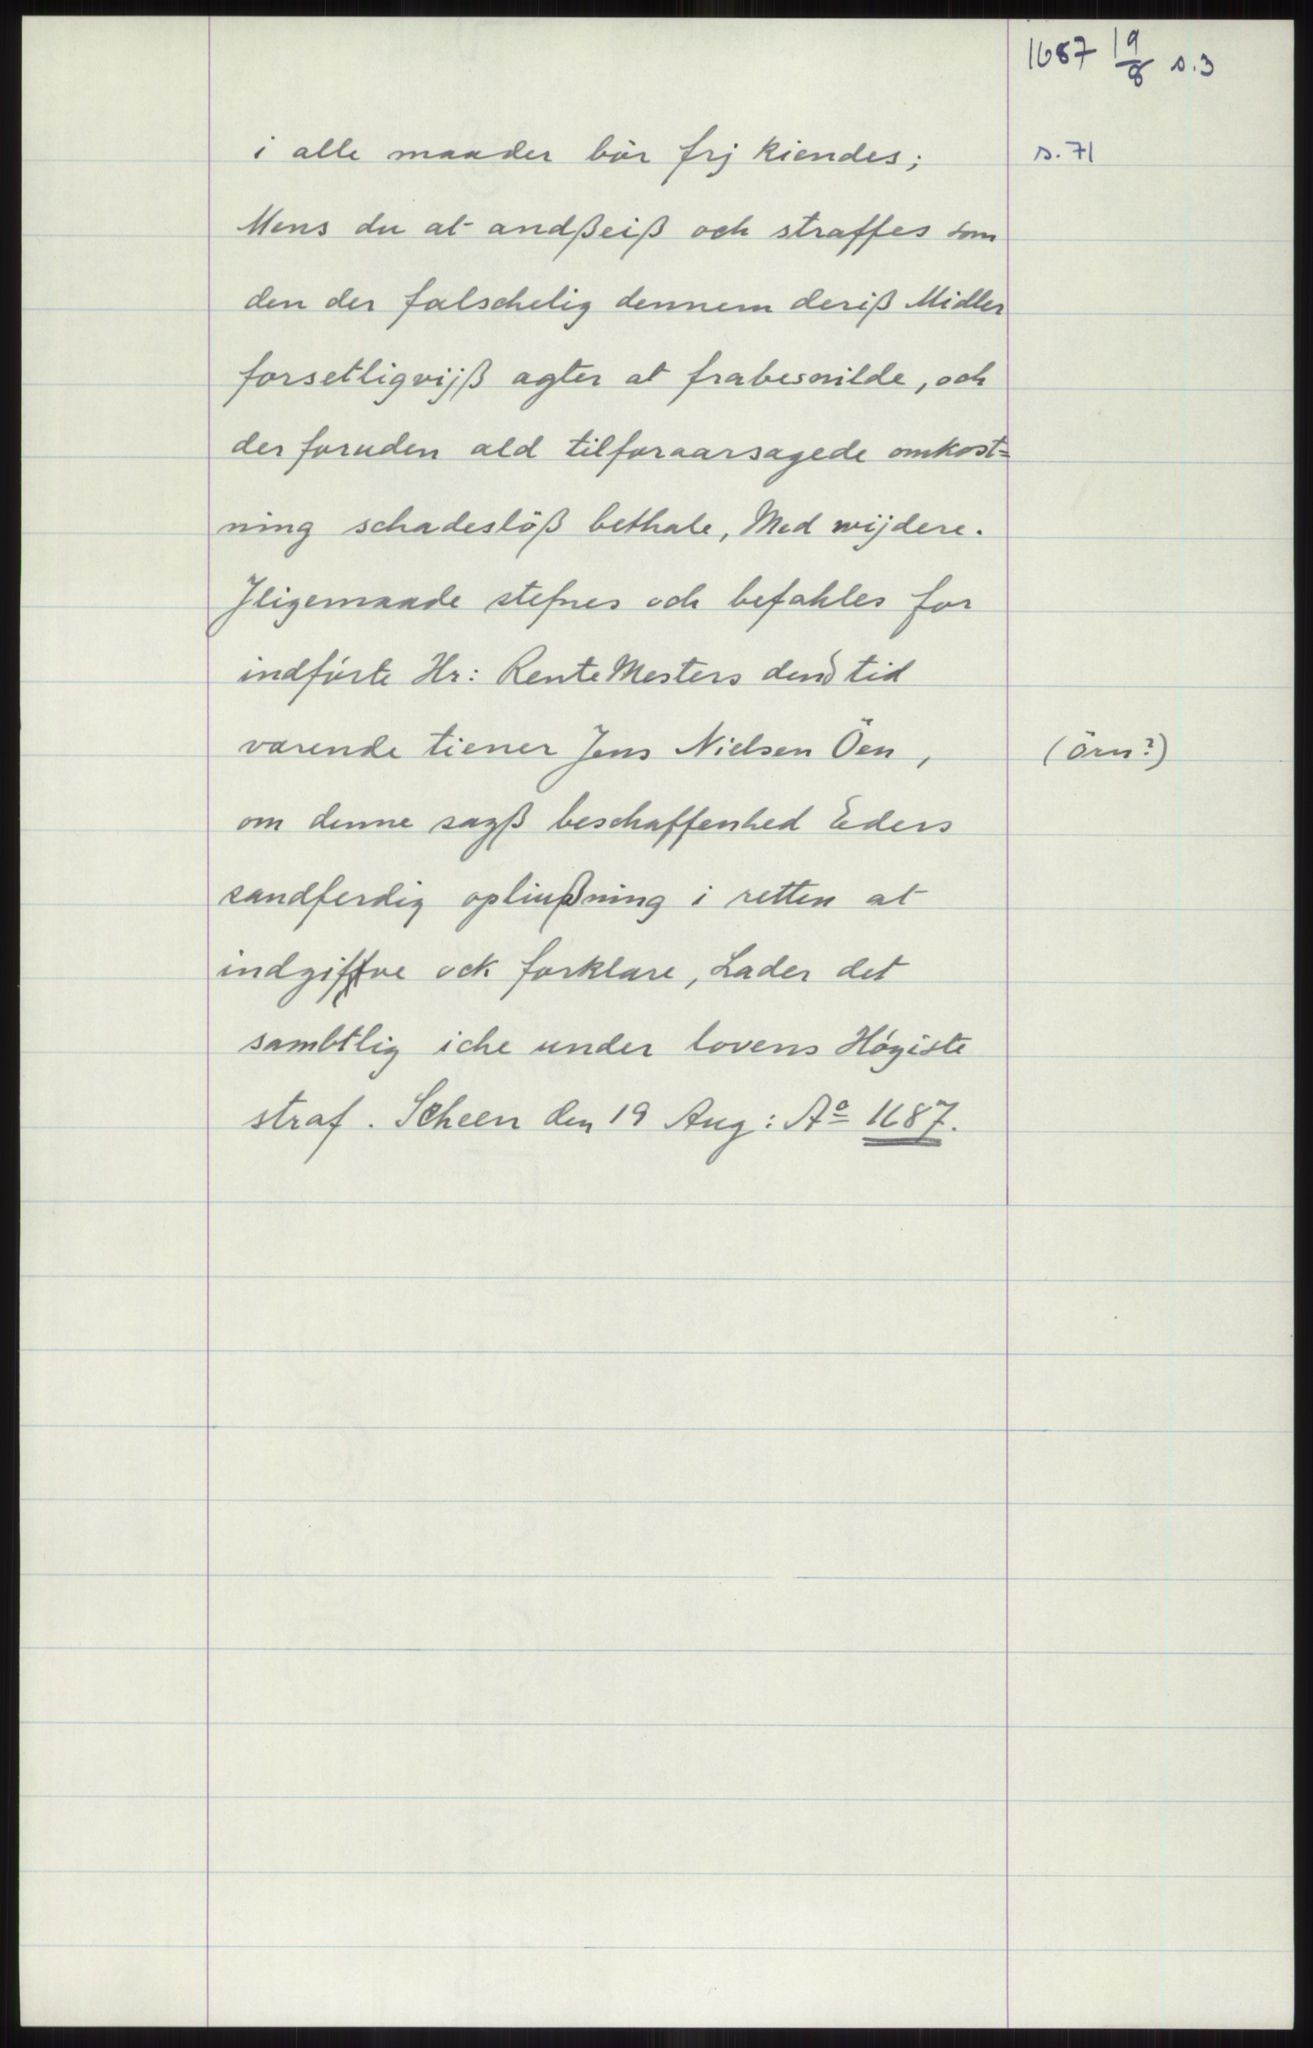 1687 19/8 s.3
i alle maader bör frj kiendes; s. 71
Mens du at andßeiß och straffes som
den der falschelig dennem deriß Midler
forsetligvijß agter at frabesnilde, och
der foruden ald tilforaarsagede omkost=
ning schadeslöß bethale, Med wijdere.
Jligemaade stefnes och befahles for
indförte Hr: Rente Mesters dend tid
varende tiener Jens Nielsen Öen, (örn?)
om denne sagß beschaffenhed Eders
sandferdig opliußning i retten at
indgiffve ock forklare, Lader det
sambtlig iche under lovens Högiste
straf. Scheen den 19 Aug: Aº 1687.